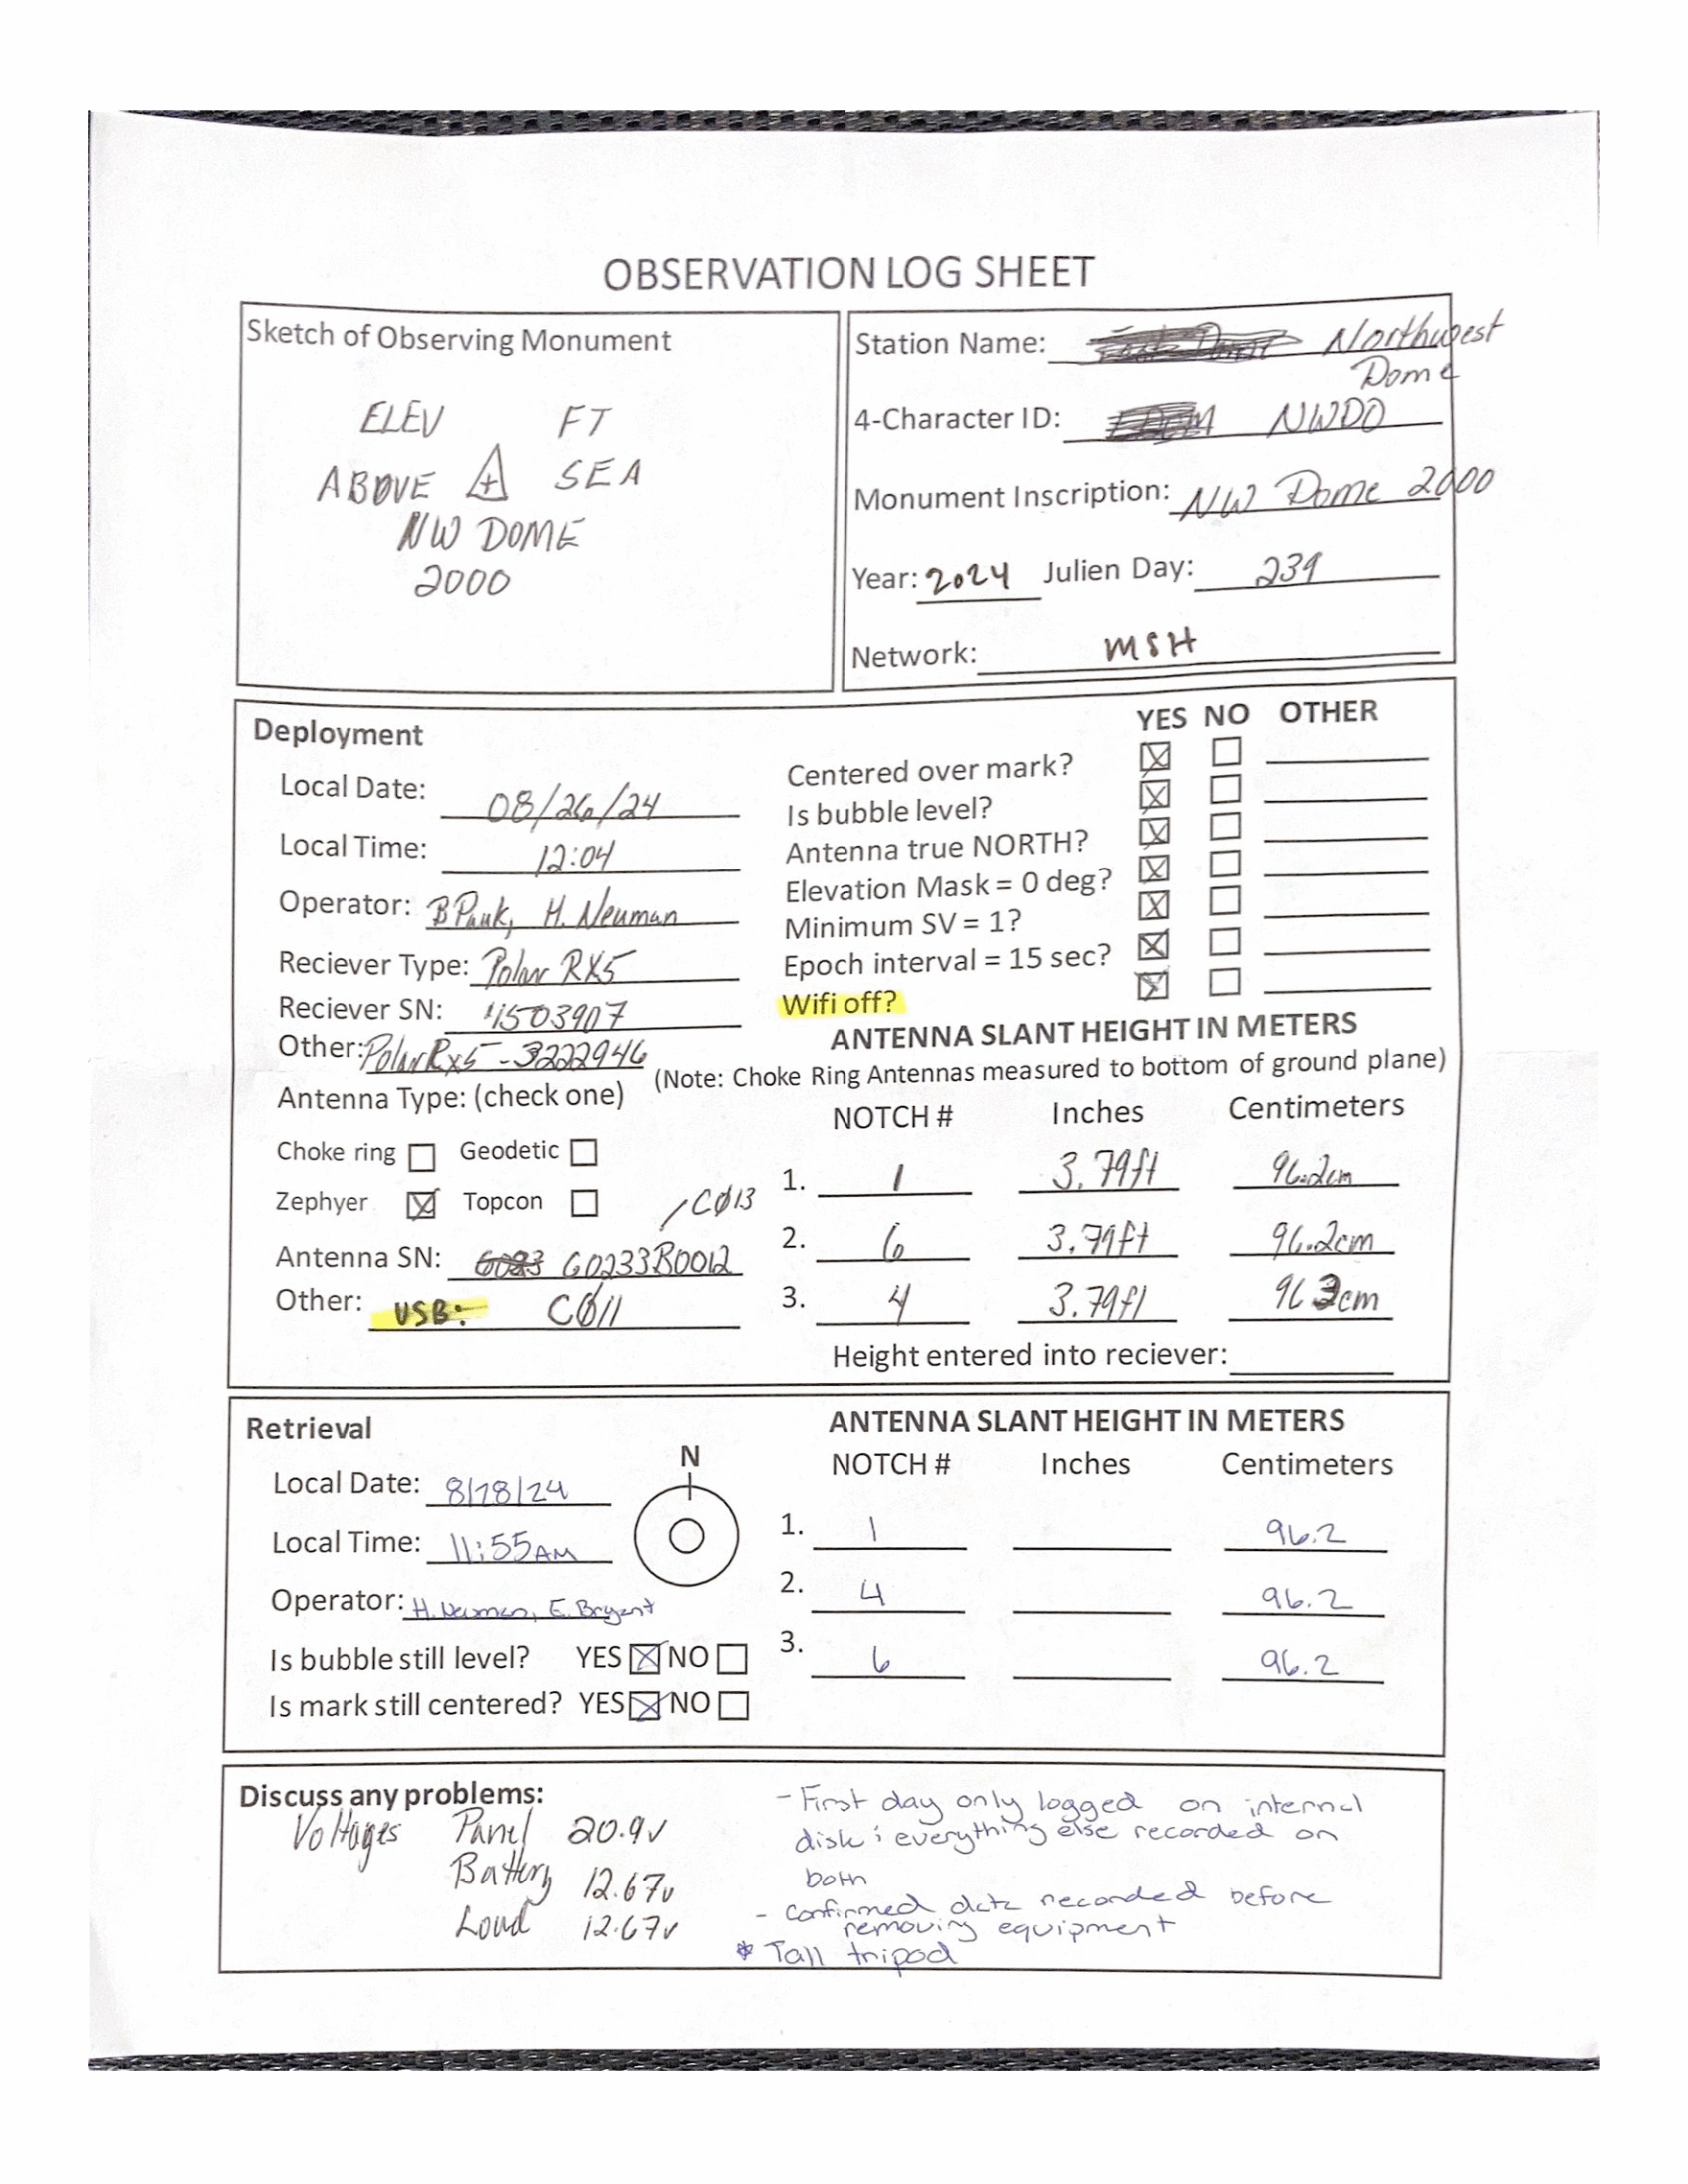 OBSERVATION LOG SHEET
Sketch of Observing Monument
ELEV FT
ABOVE SEA
NW DOME
2000
Station Name: Northwest
Dome
4-Character ID: NWDO
Monument Inscription: NW Dome 2000
Year: 2024 Julien Day: 239
Network: MSH
Deployment
YES NO OTHER
Local Date: 08/26/24
Local Time: 12:04
Operator: B Pauk, H. Neuman
Reciever Type: Polar RX5
Reciever SN: 4503907
Other: PolarRx5-3222946
Centered over mark?
Is bubble level?
Antenna true NORTH?
Elevation Mask = 0 deg?
Minimum SV = 1?
Epoch interval = 15 sec?
Wifi off?
Antenna Type: (check one)
Choke ring Geodetic
Zephyer Topcon
/CØ13
Antenna SN: 60233B0012
Other: USB: CØ11
ANTENNA SLANT HEIGHT IN METERS
(Note: Choke Ring Antennas measured to bottom of ground plane)
NOTCH # Inches Centimeters
1. 1 3.79ft 96.2cm
2. 6 3.79ft 96.2cm
3. 4 3.79ft 96 2cm
Height entered into reciever:
Retrieval
Local Date: 8/28/24
Local Time: 11:55AM
Operator: H. Neuman, E. Bryant
Is bubble still level? YES NO
Is mark still centered? YES NO
N
ANTENNA SLANT HEIGHT IN METERS
NOTCH # Inches Centimeters
1. 1 96.2
2. 4 96.2
3. 6 96.2
Discuss any problems:
Voltages Panel 20.9v
Battery 12.67v
Load 12.67v
- First day only logged on internal
disk; everything else recorded on
both
- Confirmed data recorded before
removing equipment
* Tall tripod